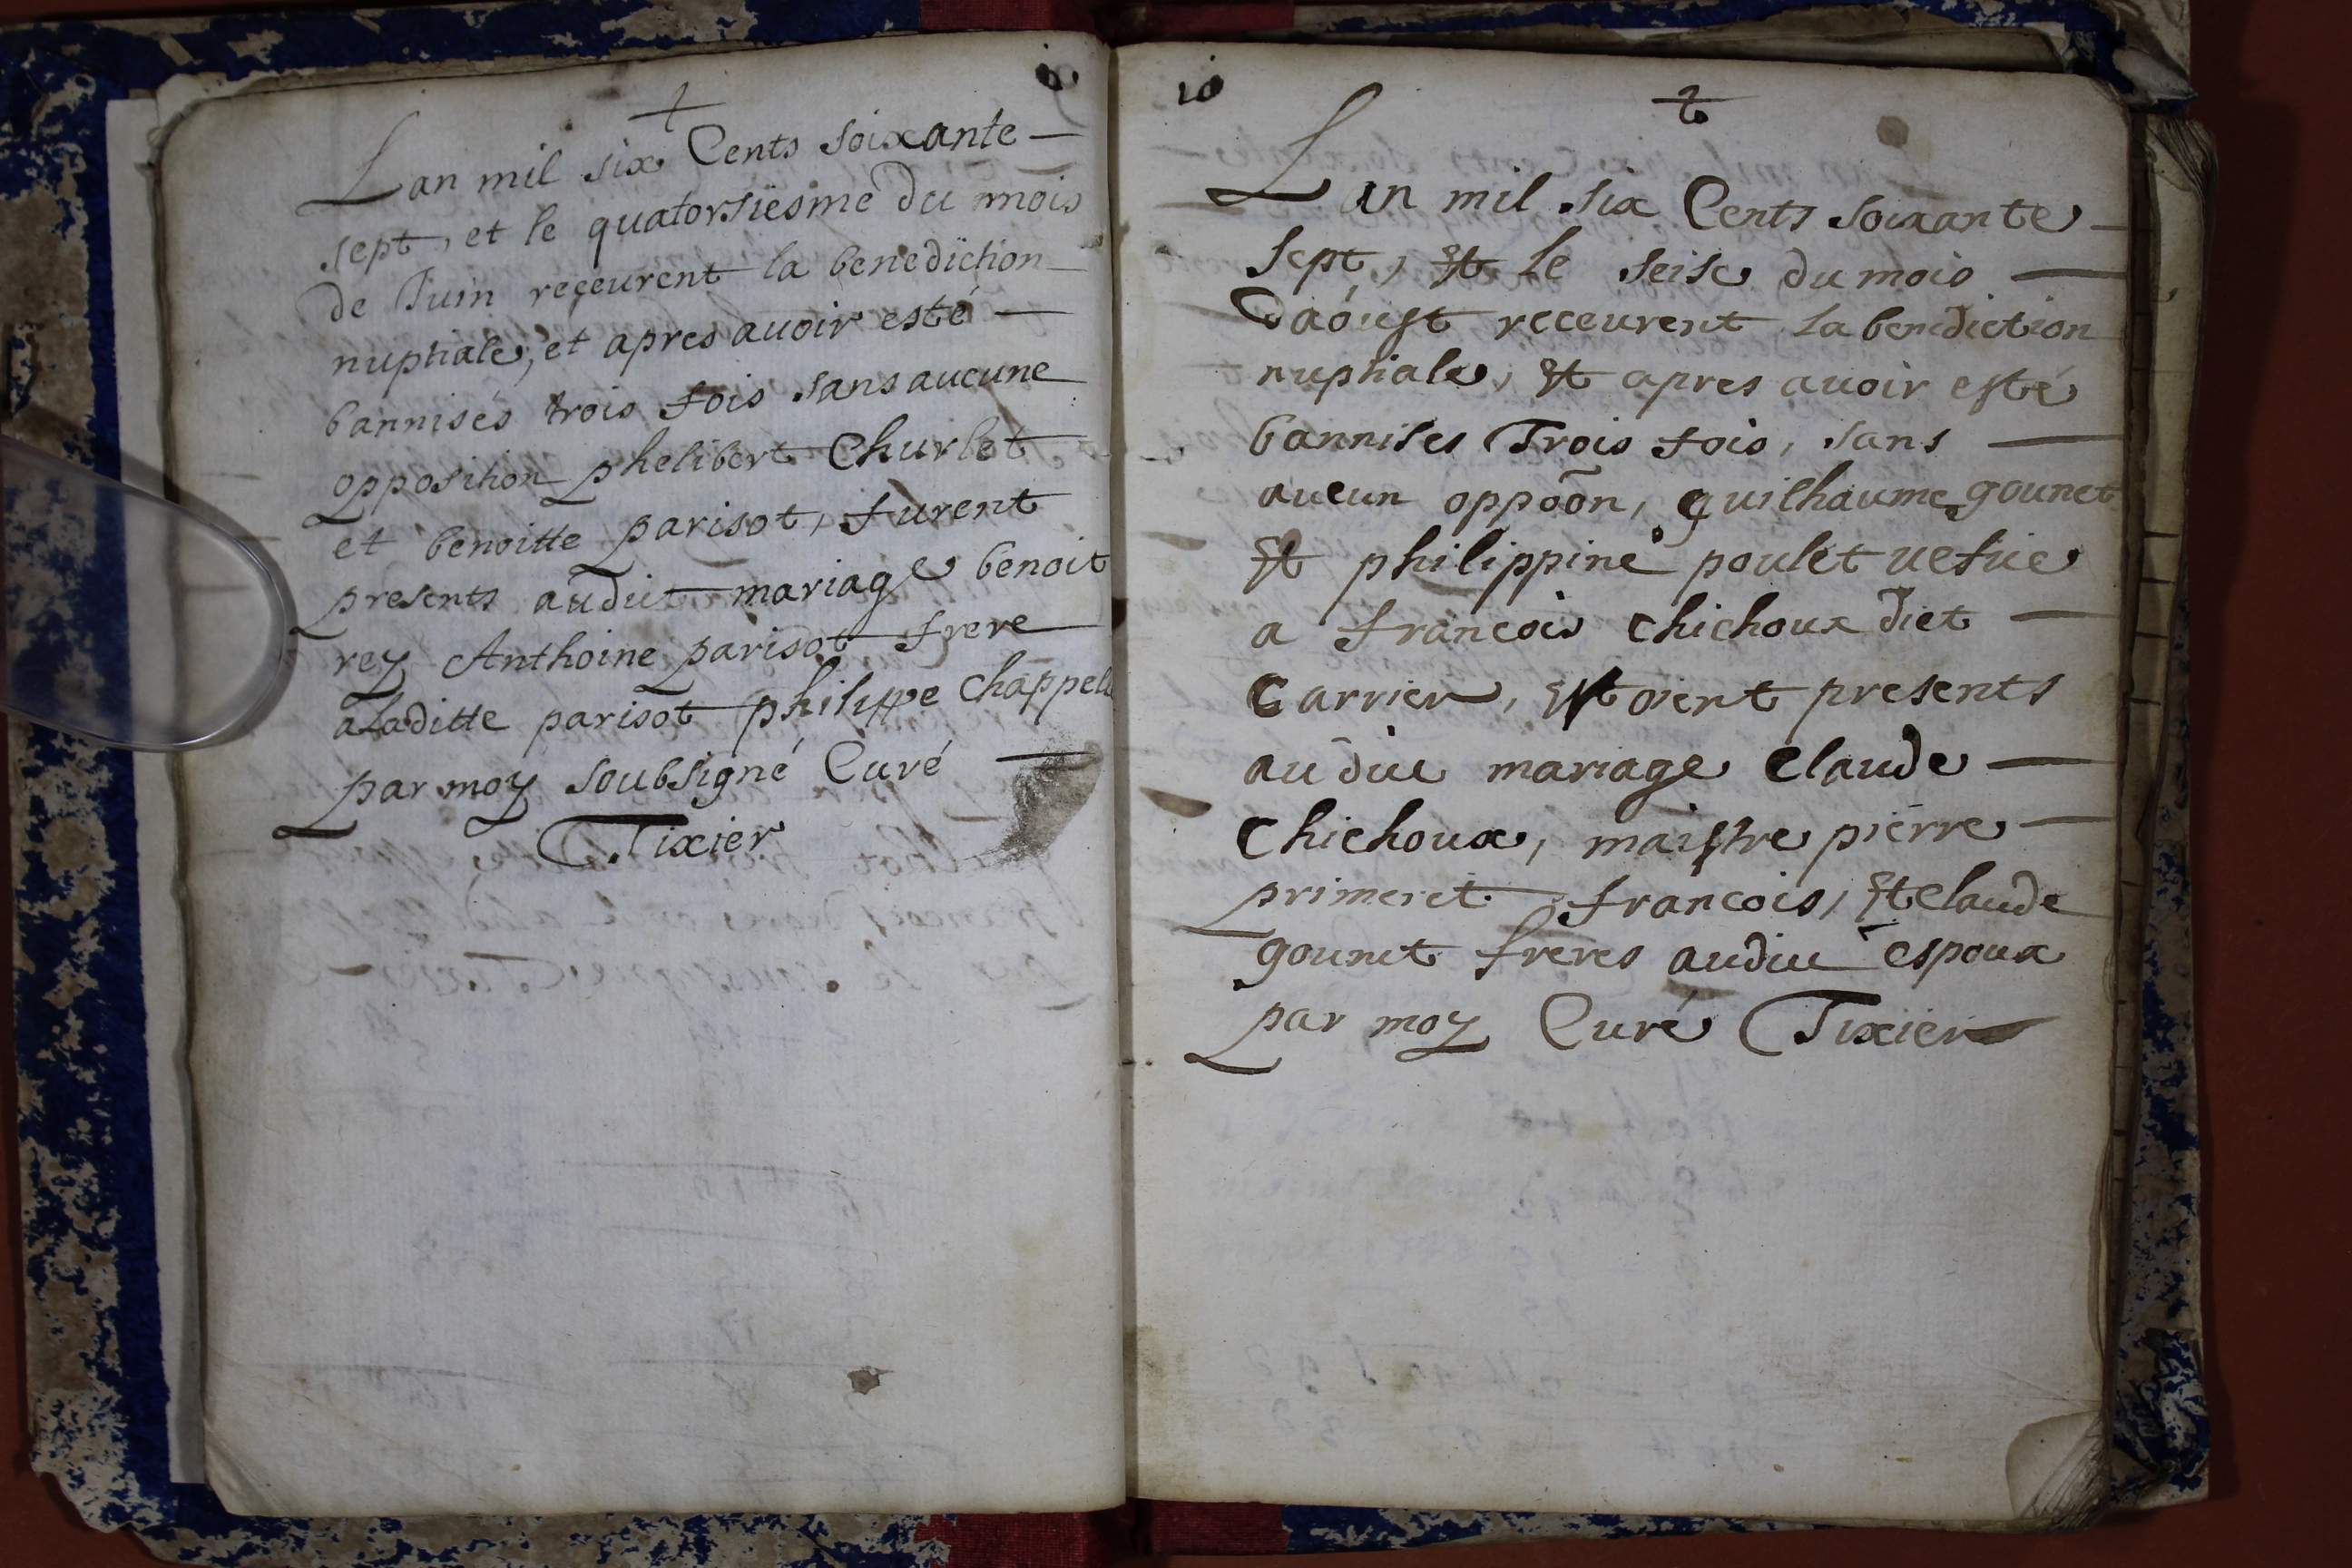 Lan mil six Cents soixante —
sept, et le quatorsiesme du mois
de Juin reçeurent la benediction
nuptiale, et apres auoir esté —
bannisés trois fois sans aucune
opposition phelibert Churlet
et benoitte parisot, furent
presents audit mariage benoit
rey Anthoine parisot frere
aladitte parisot philippe Chappel
par moy soubsigné Curé —
Tixier
10
Lan mil six Cents soixante —
sept, Et le seise du mois —
daoust receurent la benidiction
nuptiale, Et apres auoir esté
bannises Trois fois, sans —
aucun oppoõn, guilhaume gounet
Et philippine poulet uefue
a francois Chichoux dict —
Carrier, Estoient presents
audit mariage Claude —
Chichoux, maistre pierre —
primeret francois, Et claude
gounet freres audit espoux
par moy Curé Tixier